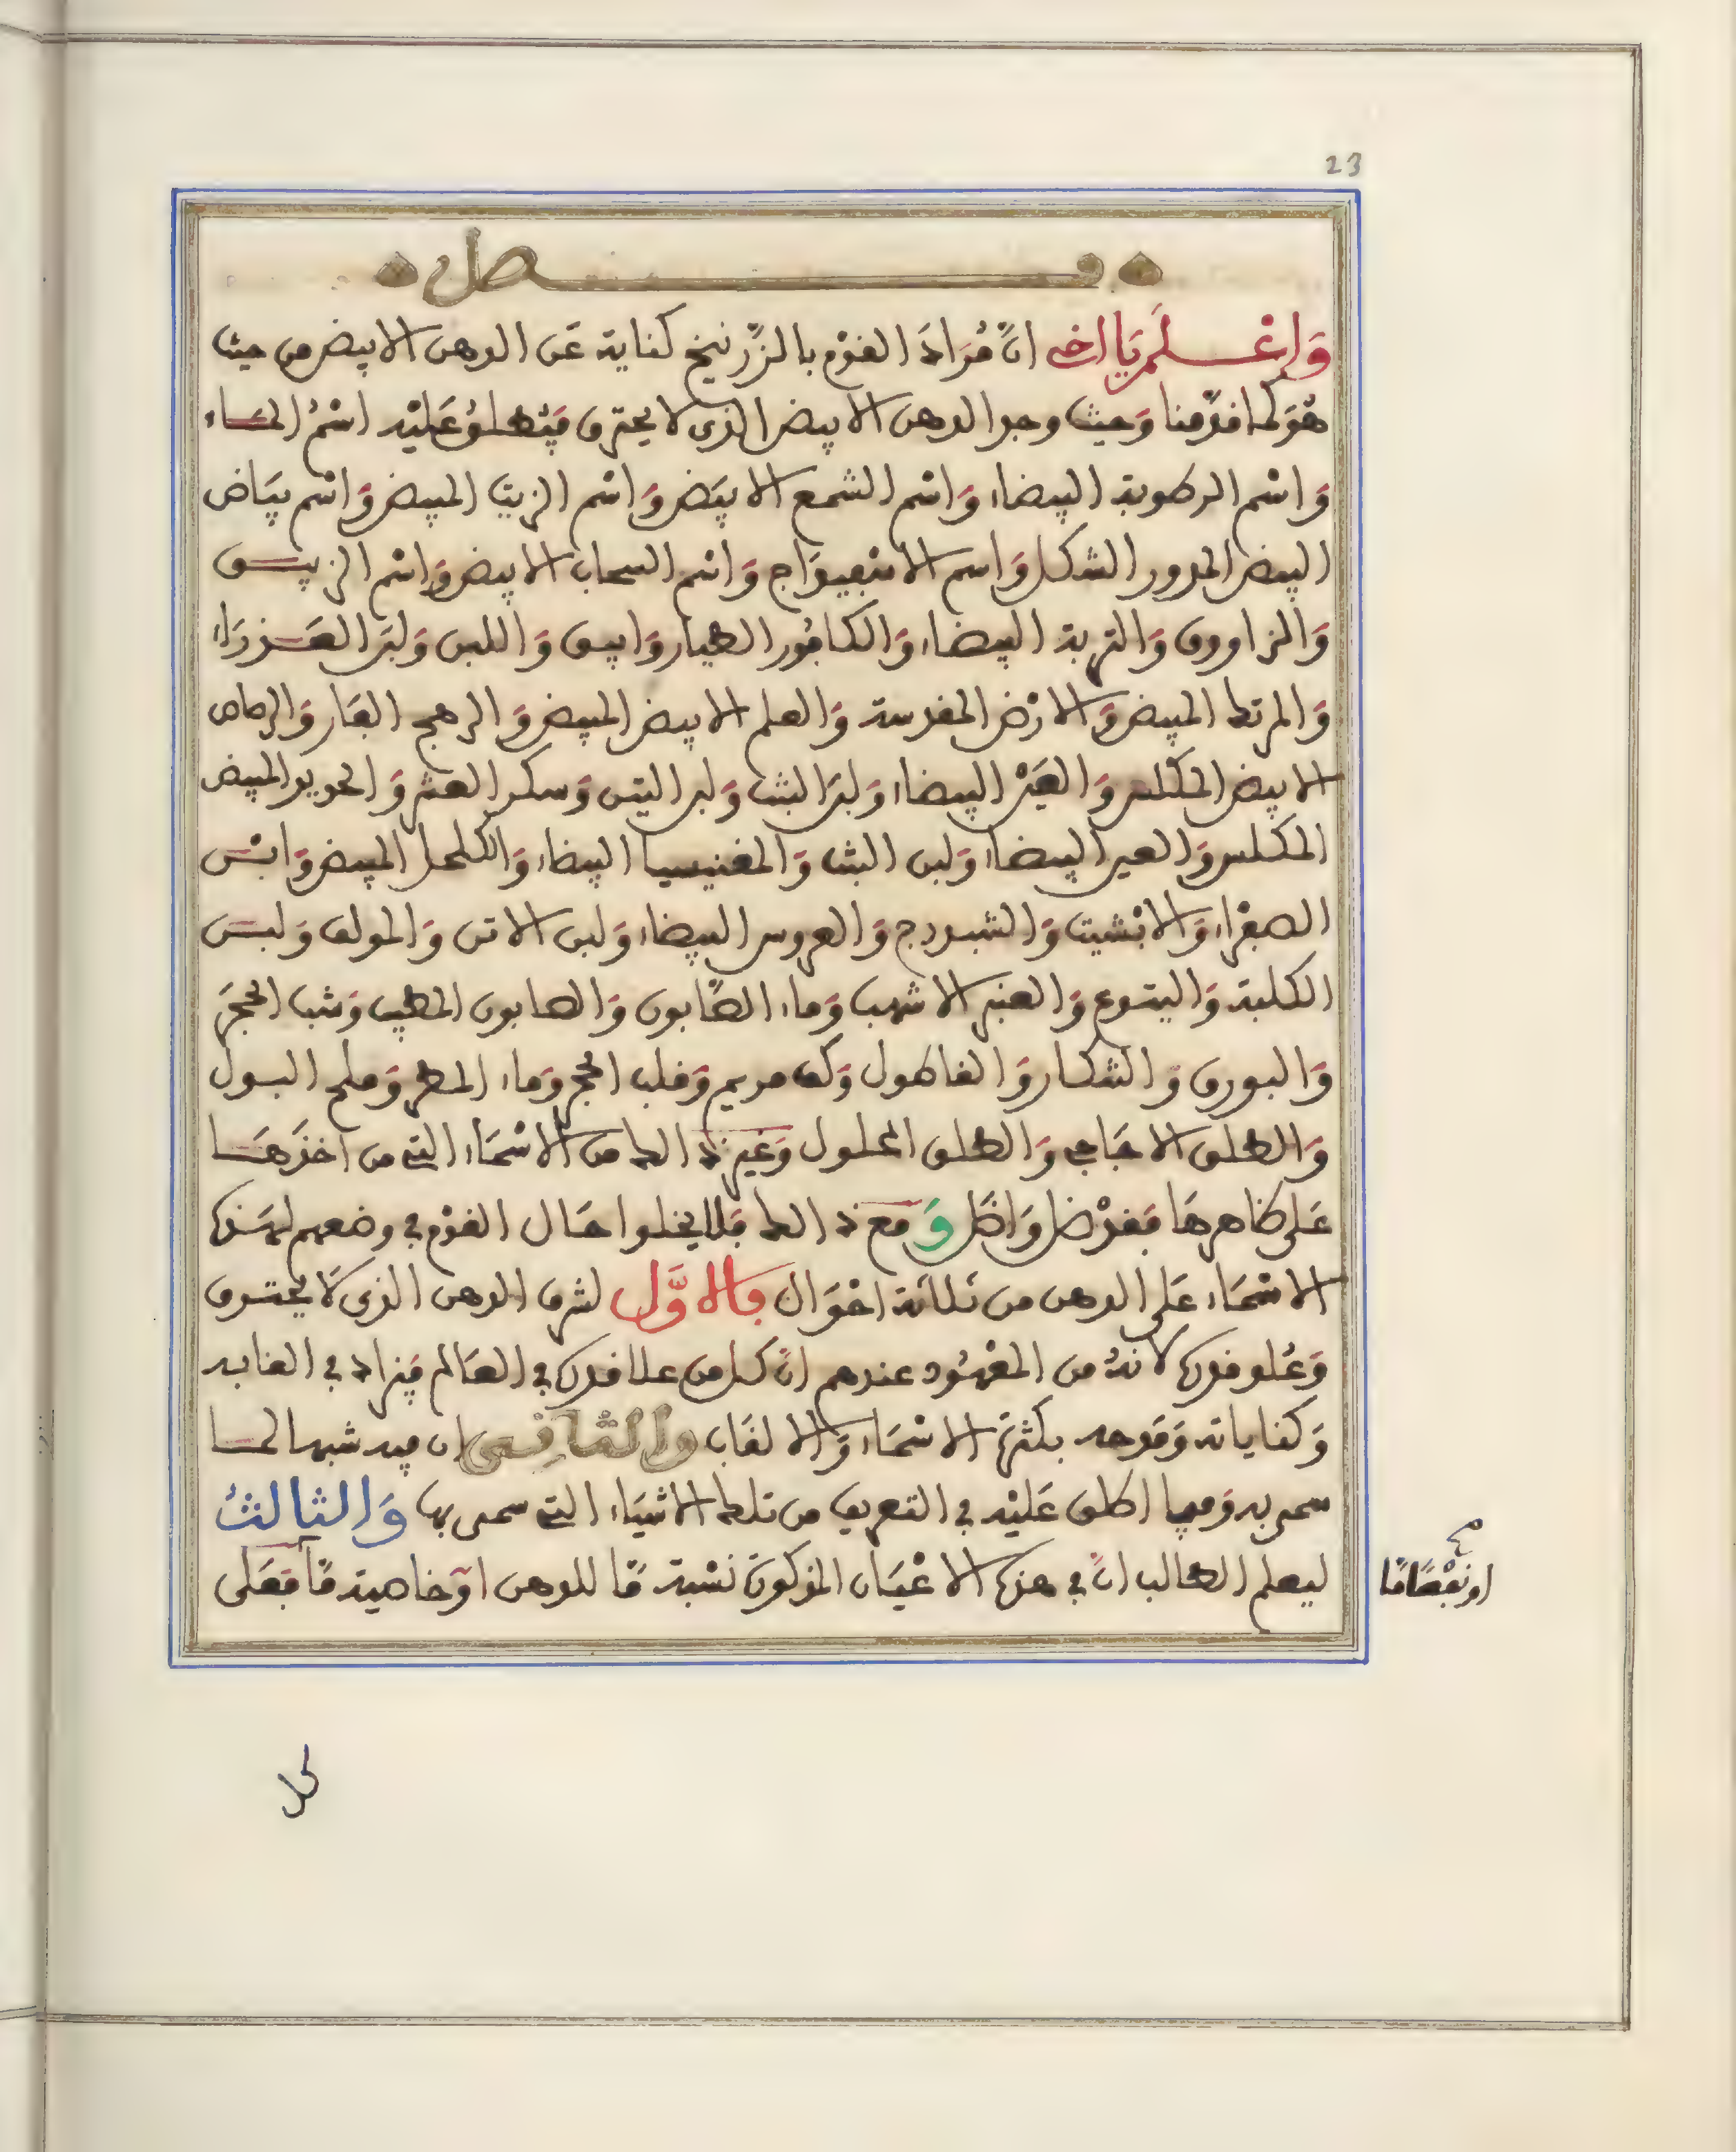 23
فصل
وَاعْلَم يَا اخى انَّ مُرَادَ القوْم بالزّرنيخ كناية عَن الدهن الابيض من حيث
هُوَ كما قدّمنا وَحيث وجد الدهن الابيض الذى لا يحترق فيُطلق عَليْه اسْمُ الماء
وَاسْم الرطوبة البيضاء وَاسْم الشمع الابيَض وَاسْم الزيت المبيض وَاسْم بيَاض
البيض المدور الشكل وَاسم الاسْفيدَاج وَاسْم السحاب الابيض وَاسْم الزيبق
وَالزاووق وَالتربة البيضاء وَالكافُور الطيار وَابيق وَاللبن وَلبَن العَذرَاء
وَالمرتك المبيض وَالارْض المقدسة وَالعلم الابيض المبيض وَالرهج الفَار وَالرصاص
الابيض المكلس وَالعَيْن البيضاء وَلبَن البنت وَلبن التين وَسكر العشر وَالحديد المبيض
المكلس وَالعين البيضاء وَلبن البنت وَالمغنيسيا البيضاء وَالكلحل المبيض وَابْن
الصفْراء وَالانْشيت وَالشبدرج وَالعروس البيضاء وَلبن الاتن وَالمولف وَلبَن
الكلبة وَاليتوع وَالعنبر الاشهب وَماء الصَّابون وَالصابون المطيب وَشب الحجَر
وَالبورق وَالشكار وَالفاطول وَكف مريم وَقلب الحجر وَماء المطر وَملح البول
وَالطلق الاجَاجى وَالطلق المحلول وَغير ذالك من الاسْمَاء التى من اخذَهَا
عَلى ظاهرهَا فقدْ ضل وَاضَل وَمع ذالك فلا يخلوا حَال القوْم فى وضعهم لهَذه
الاسْمَاء عَلى الدهن من ثلاثة احْوَال فالاوَّل لشرف الدهن الذى لَا يحترق
وَعُلو قدره لانهُ من المعْهُود عندهم انَّ كل من علا قدره فى العَالم فيزاد فى القابه
وَكناياته وَمدحه بكثرة الاسْمَاء وَالالقَاب وَالثانِى ان فيه شبها لما
سمى به وَفيما اطلق عَليْه فى التعريف من تلك الاشيَاء التى سمى بها وَالثالثُ
ليعلم الطالب انَّ فى هذه الاعْيَان المذكورَة نسْبة مَّا للدهن اوْ خاصية مَّا فعَلى
اونفْعًا مَّا
كل